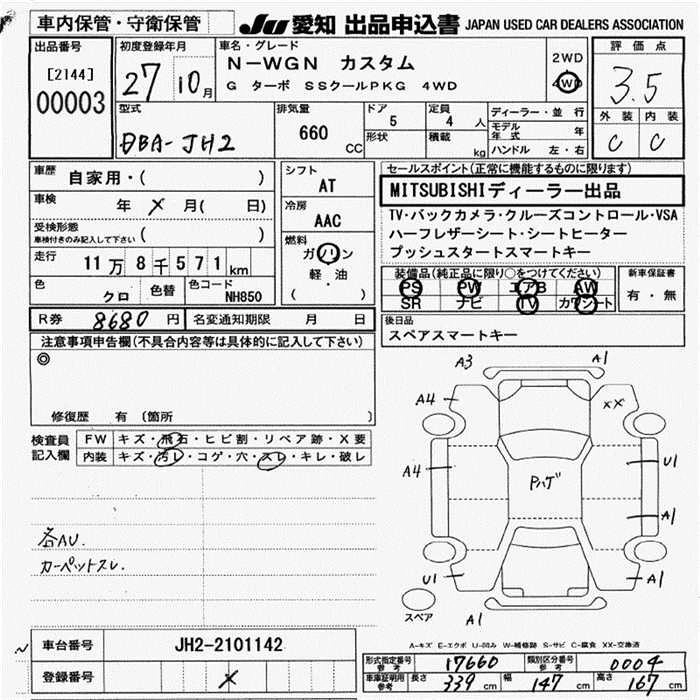 車内保管・守衛保管 JU 愛知 出品申込書 JAPAN USED CAR DEALERS ASSOCIATION
出品番号 初度登録年月 車名・グレード 評価点
[2144] 27 10月 N-WGN カスタム 2WD
00003 G ターボ SSクールPKG 4WD 4WD 3.5
型式 排気量 ドア 定員 ディーラー・並行 外装 内装
DBA-JH2 660 CC 5 4 人 モデル年式 年 C C
形状 積載 kg ハンドル 左・右
車歴 自家用・( ) シフト AT セールスポイント(正常に機能するものに限ります)
MITSUBISHIディーラー出品
車検 年 × 月( 日) 冷房 AAC TV・バックカメラ・クルーズコントロール・VSA
受検形態 ハーフレザーシート・シートヒーター
車検付きのみ記入して下さい ( ) 燃料 ガソリン プッシュスタートスマートキー
走行 11万8千571km 軽・油 装備品(純正品に限り○をつけてください) 新車保証書
色 クロ 色替 色コード NH850 ( ) PS PW エアB AW 有・無
SR ナビ TV カワシート
R券 8680円 名変通知期限 月 日 後日品
注意事項申告欄(不具合内容等は具体的に記入して下さい) スペアスマートキー
◎
修復歴 有 (箇所 )
検査員記入欄 FW キズ・飛石・ヒビ割・リペア跡・X要
内装 キズ・汚レ・コゲ・穴・スレ・キレ・破レ
A3 A1
A4 XX
A4 U1
Pハゲ
A1
各AU.
カーペットスレ.
U1 A1
スペア A1
A-キズ E-エクボ U-凹み W-補修跡 S-サビ C-腐食 XX-交換済
車台番号 JH2-2101142
登録番号 ×
形式指定番号 参考 17660 類別区分番号 参考 0004
車庫証明用 参考 長さ 339 cm 幅 147 cm 高さ 167 cm